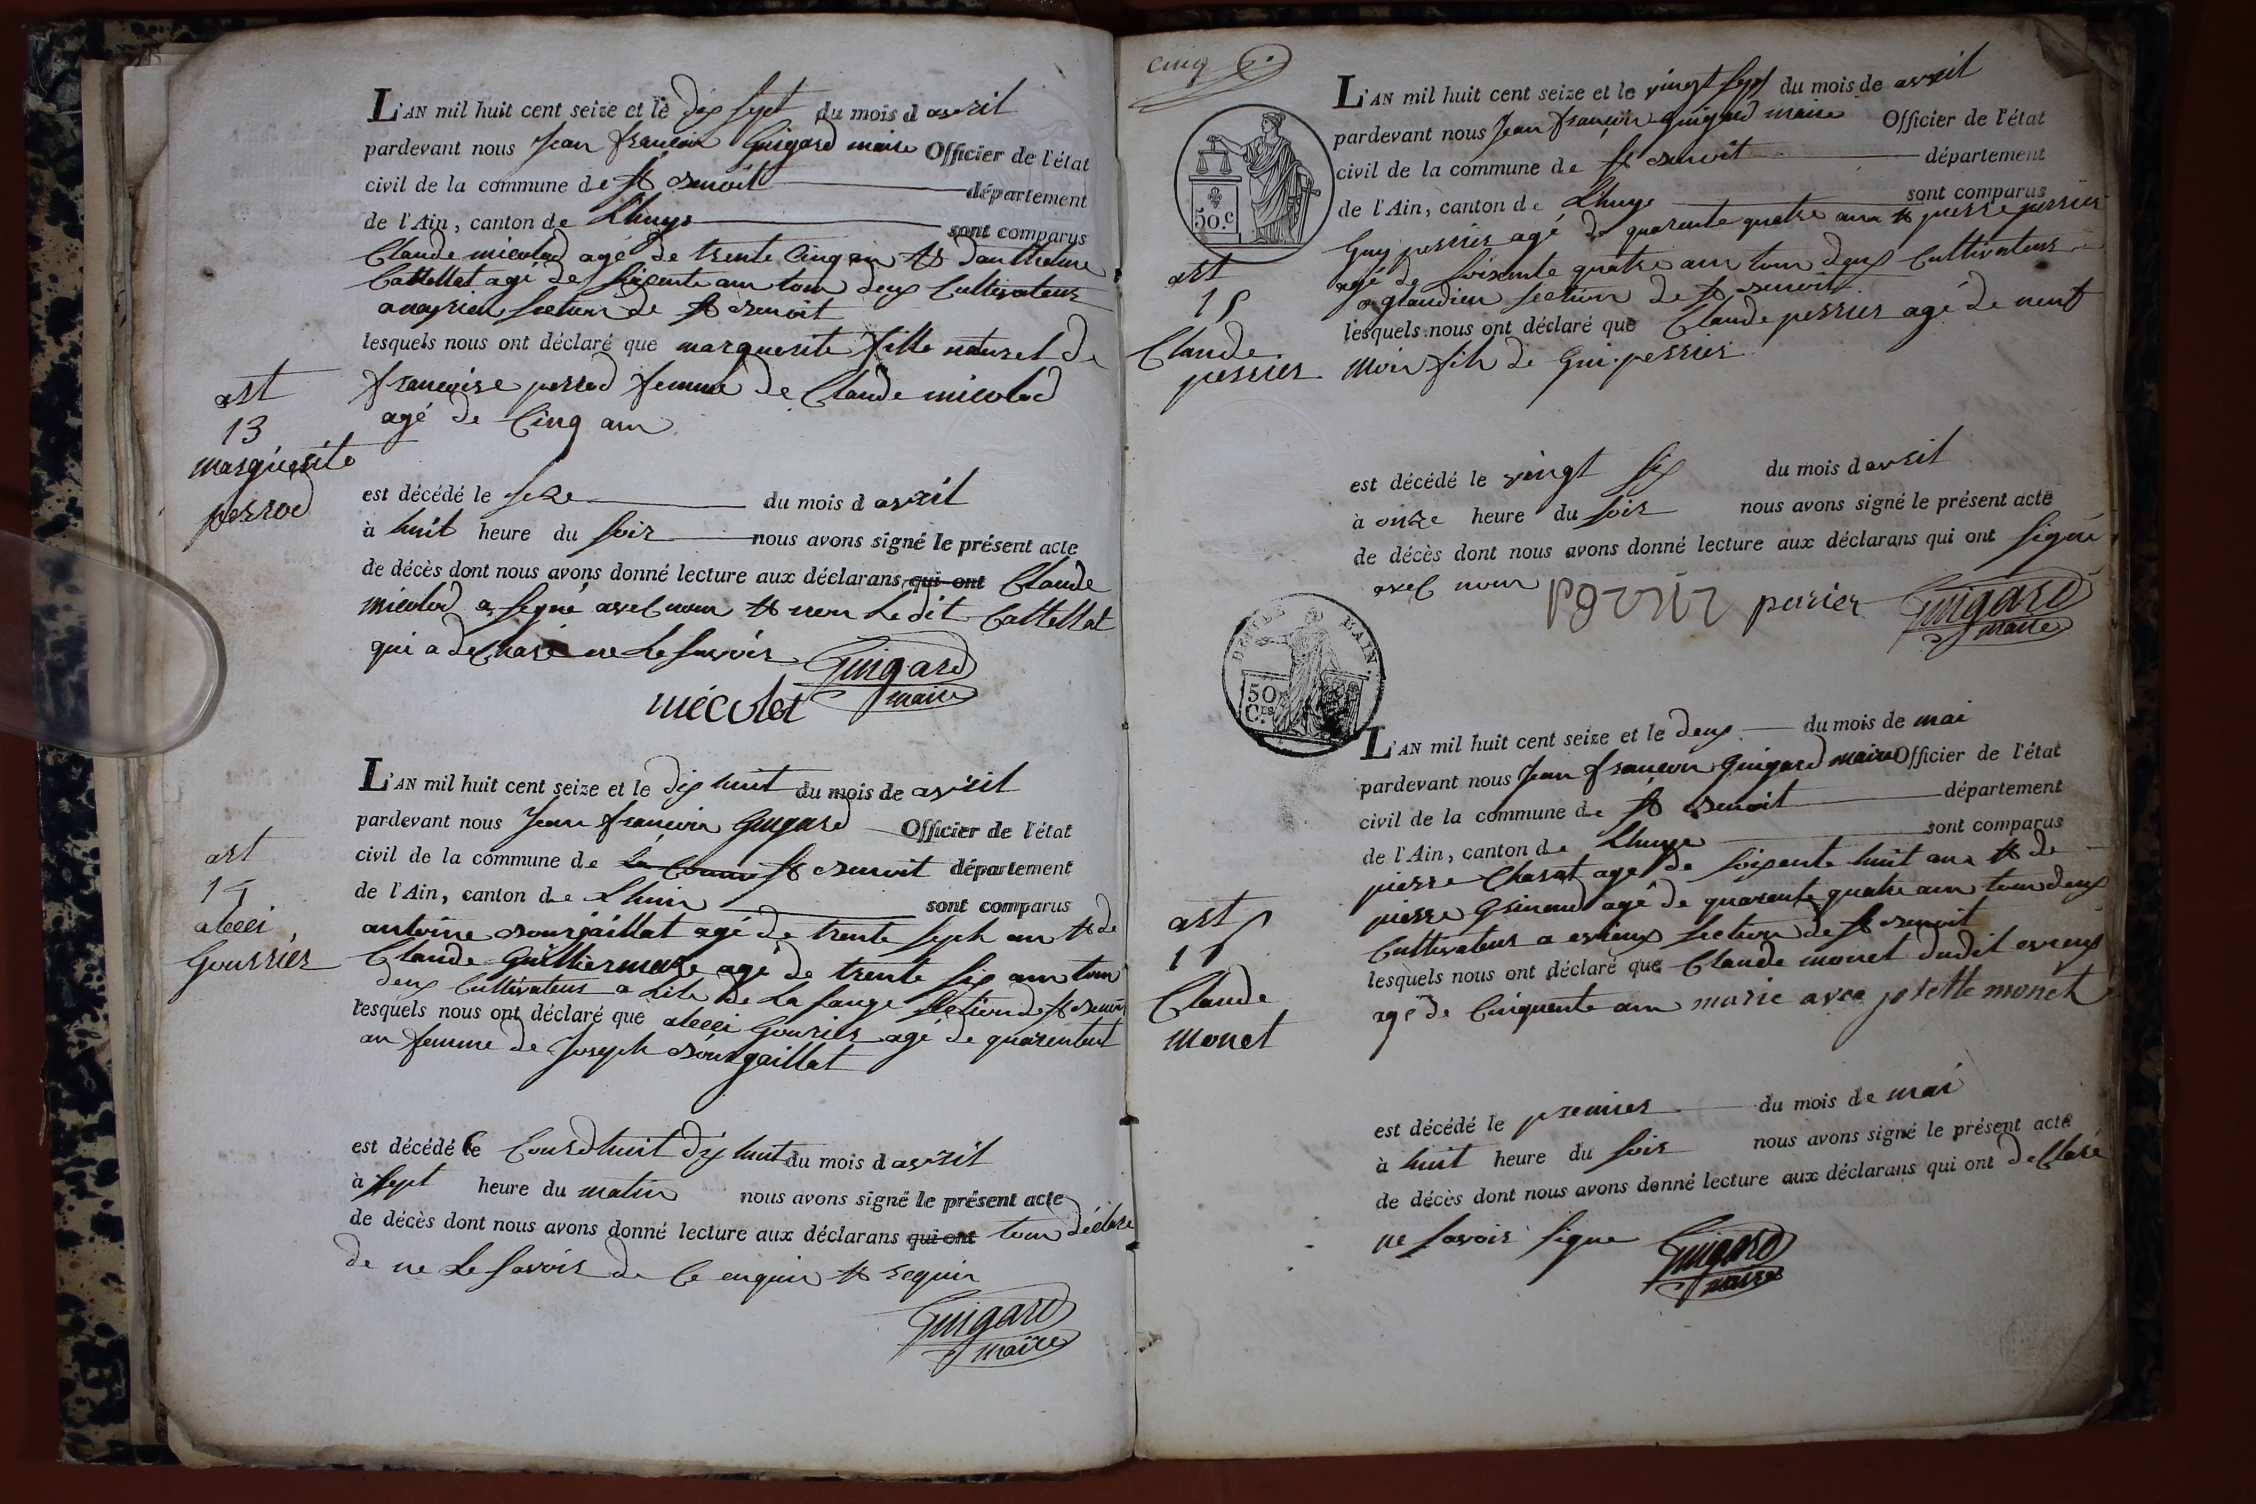 L'AN mil huit cent seize et le dix sept du mois d avril
pardevant nous Jean françois Guigard maire Officier de l'état
civil de la commune de st Benoit département
de l'Ain, canton de Lhuys sont comparus
Claude micolod agé de trente cinq an et d'anthelme
Cattellat agé de soixente ans tous deux Cultivateurs
a section de st Benoit
lesquels nous ont déclaré que marguerite fille naturel de
françoise perrod femme de Claude micolod
agé de Cinq ans
art
13
marguerite
perrod
est décédé le seze du mois d avril
à huit heure du soir nous avons signé le présent acte
de décès dont nous avons donné lecture aux déclarans qui ont Claude
micolod a signé avec nous et non Le dit Cattellat
qui a declaré ne le savoir
Guigard
maire
mécolet
L'AN mil huit cent seize et le dix huit du mois de avril
pardevant nous Jean françois Guigard Officier de l'état
civil de la commune de st Benoit département
de l'Ain, canton de Lhuis sont comparus
art
14
alexi
Gourrier
antoine Bourgaillat agé de trente sept an et de
Claude Guilliermare agé de trente six ans tous
deux Cultivateurs a section de st Benoit
lesquels nous ont déclaré que alexi Gourier agé de quarentent
an femme de Joseph Bourgaillat
est décédé le dix huit du mois d avril
à sept heure du matin nous avons signé le présent acte
de décès dont nous avons donné lecture aux déclarans qui ont tous déclaré
de ne Le savoir de ce enquis et requis
Guigard
maire
cinq
50.c
L'AN mil huit cent seize et le vingt sept du mois de avril
pardevant nous Jean françois Guigard maire Officier de l'état
civil de la commune de st Benoit département
de l'Ain, canton de Lhuys sont comparus
Guy perrier agé de quarente quatre ans et pierre perrier
agé de soixente quatre ans tous deux Cultivateurs
a glandieu section de st Benoit
lesquels nous ont déclaré que Claude perrier agé de neuf
mois fils de Gui perrier
art
15
Claude
perrier
est décédé le vingt six du mois d avril
à onze heure du soir nous avons signé le présent acte
de décès dont nous avons donné lecture aux déclarans qui ont signé
avec nous
perrier perier Guigard
maire
DÉP. DE L'AIN.
50
C.es
L'AN mil huit cent seize et le deux du mois de mai
pardevant nous Jean françois Guigard maire Officier de l'état
civil de la commune de st Benoit département
de l'Ain, canton de Lhuys sont comparus
pierre Charat agé de soixente huit ans et de
pierre Grinand agé de quarente quatre ans tous deux
Cultivateurs a evieux section de st Benoit
lesquels nous ont déclaré que Claude monet dudit evieux
agé de Cinquente ans marie avec josette monet
art
16
Claude
monet
est décédé le premier du mois de mai
à huit heure du soir nous avons signé le présent acte
de décès dont nous avons donné lecture aux déclarans qui ont declaré
ne savoir signe
Guigard
maire